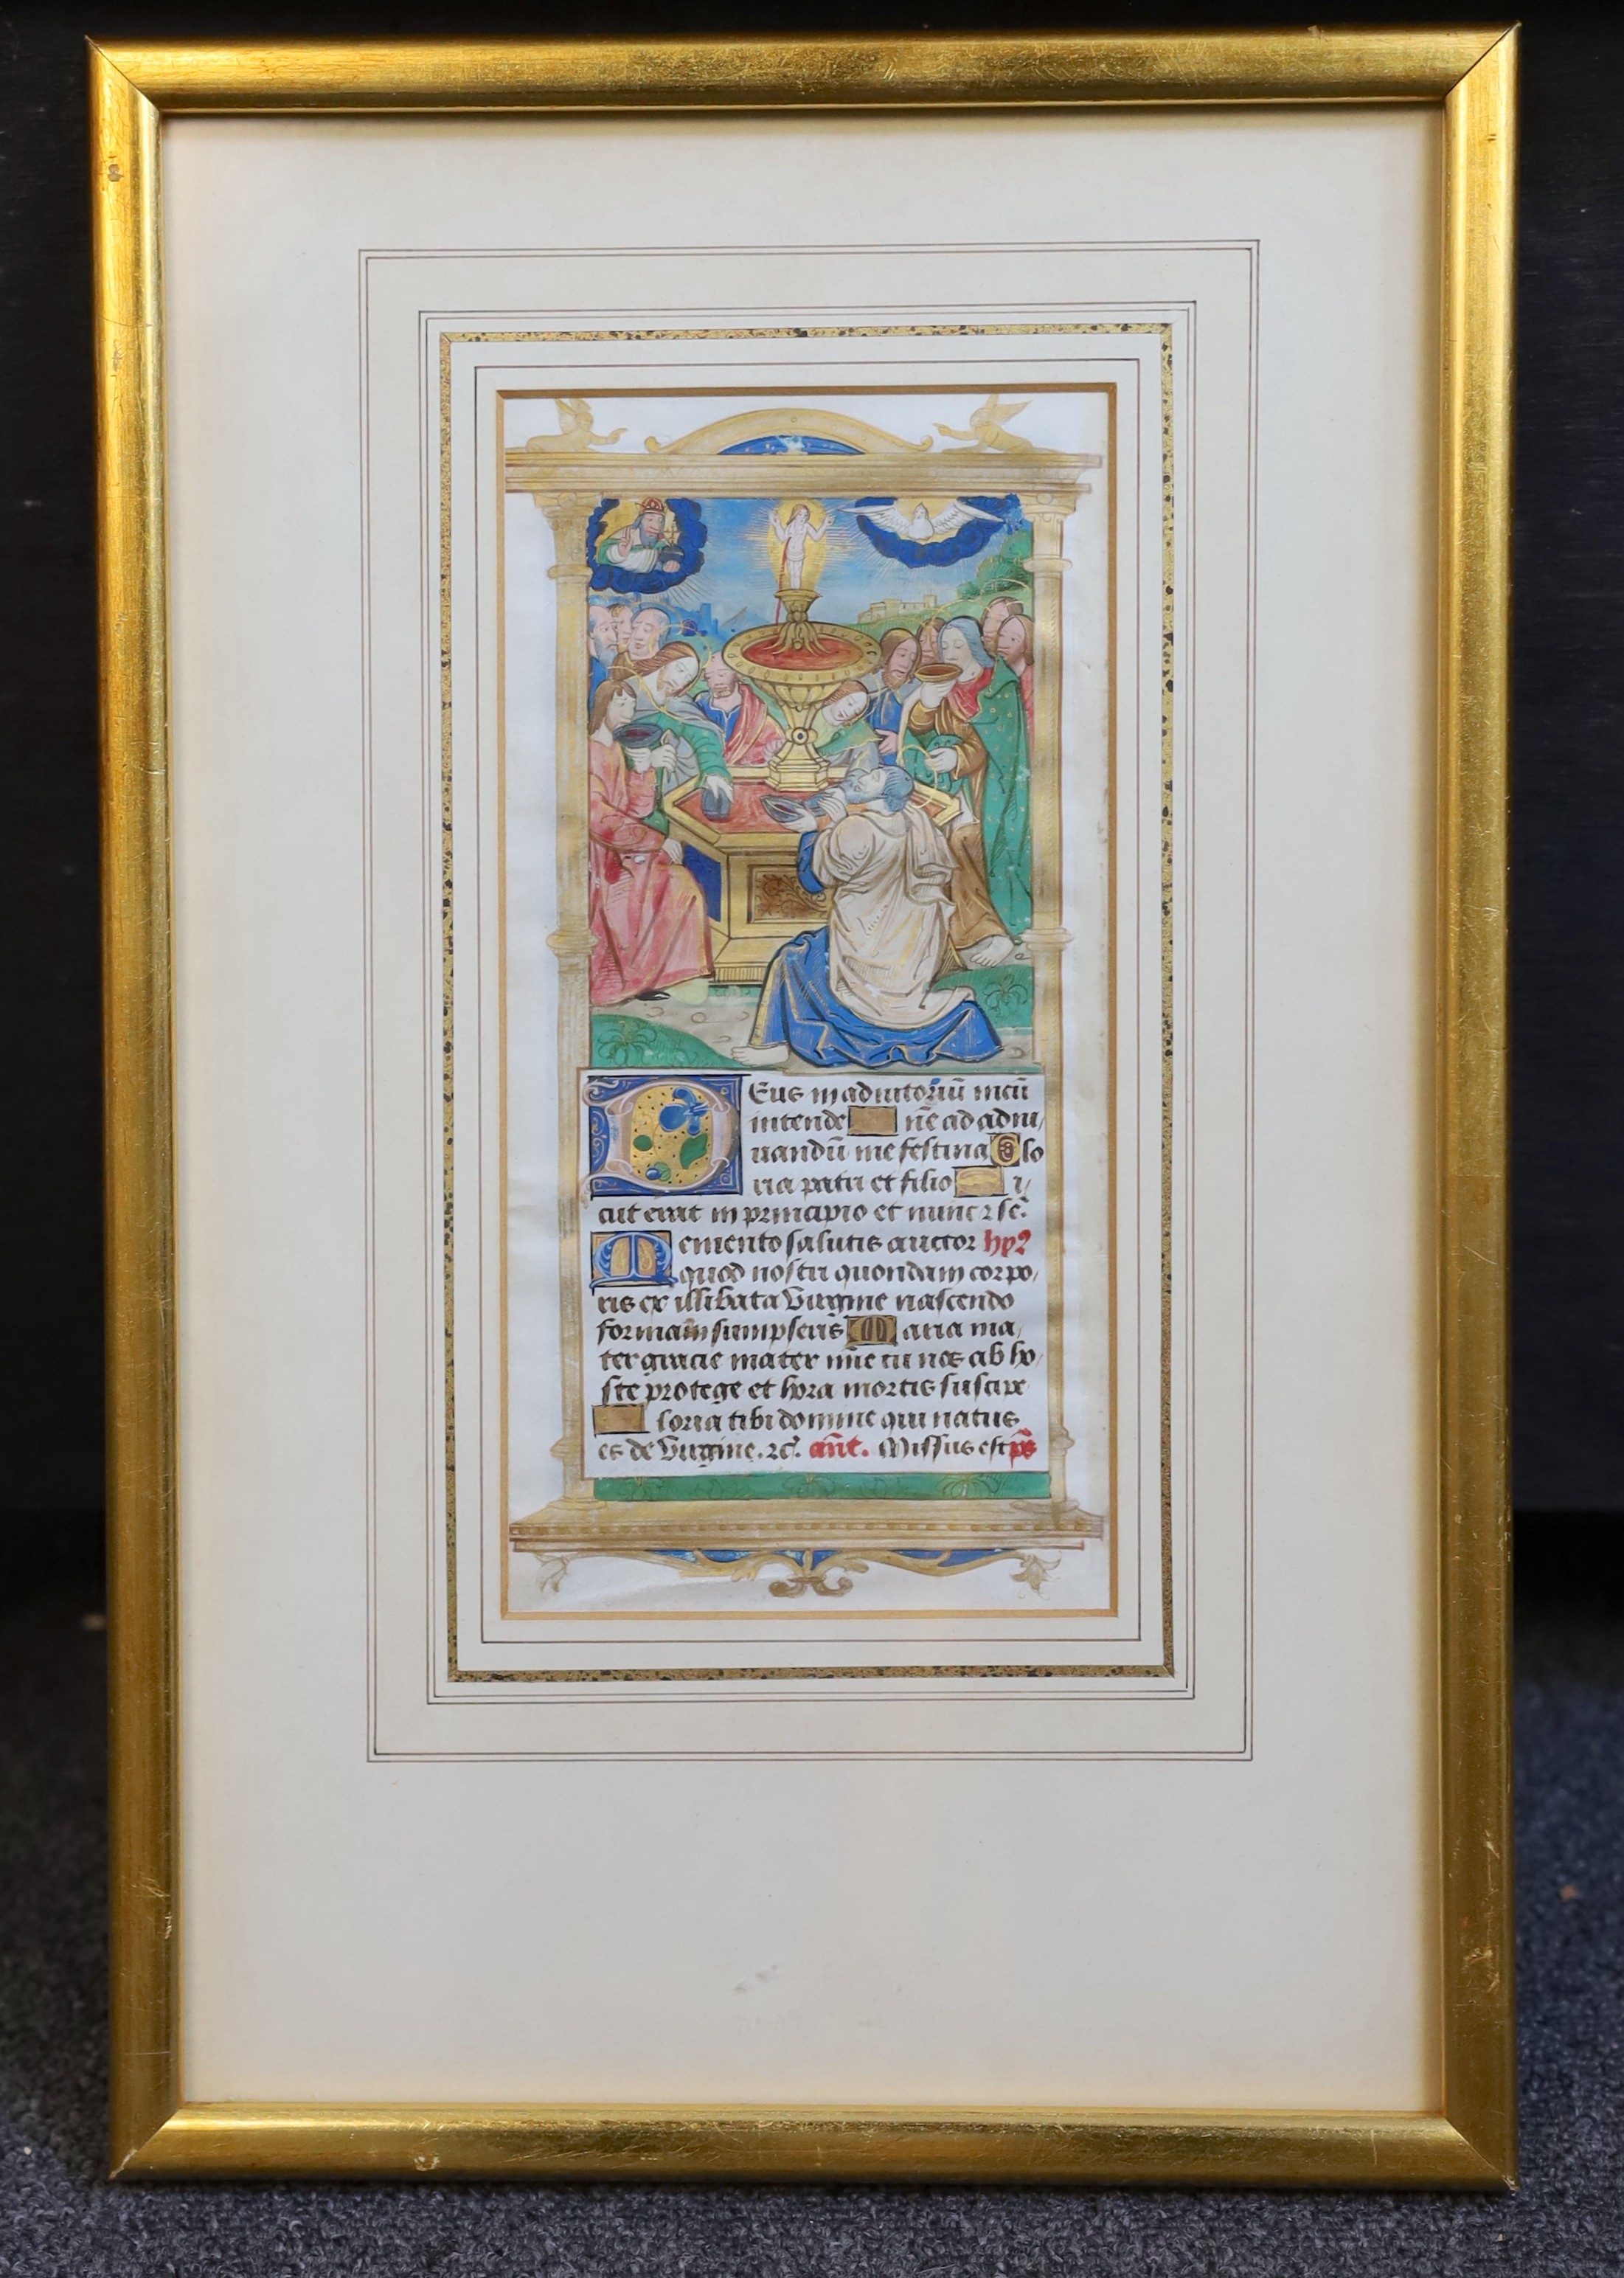 Eus in adiutoriū meū
intende nē ad adiu
uandū me festina Glo
ria patri et filio i
cut erat in principio et nunc ⁊ sē.
Memento salutis auctor hp̄
quod nostri quondam corpo
ris ex illibata Virgine nascendo
formam sumpseris Maria ma
ter gracie mater mīe tu nos ab ho
ste protege et hora mortis suscipe
loria tibi domine qui natus
es de Virgine. ⁊c̄. ant̄. Missus est p̄s